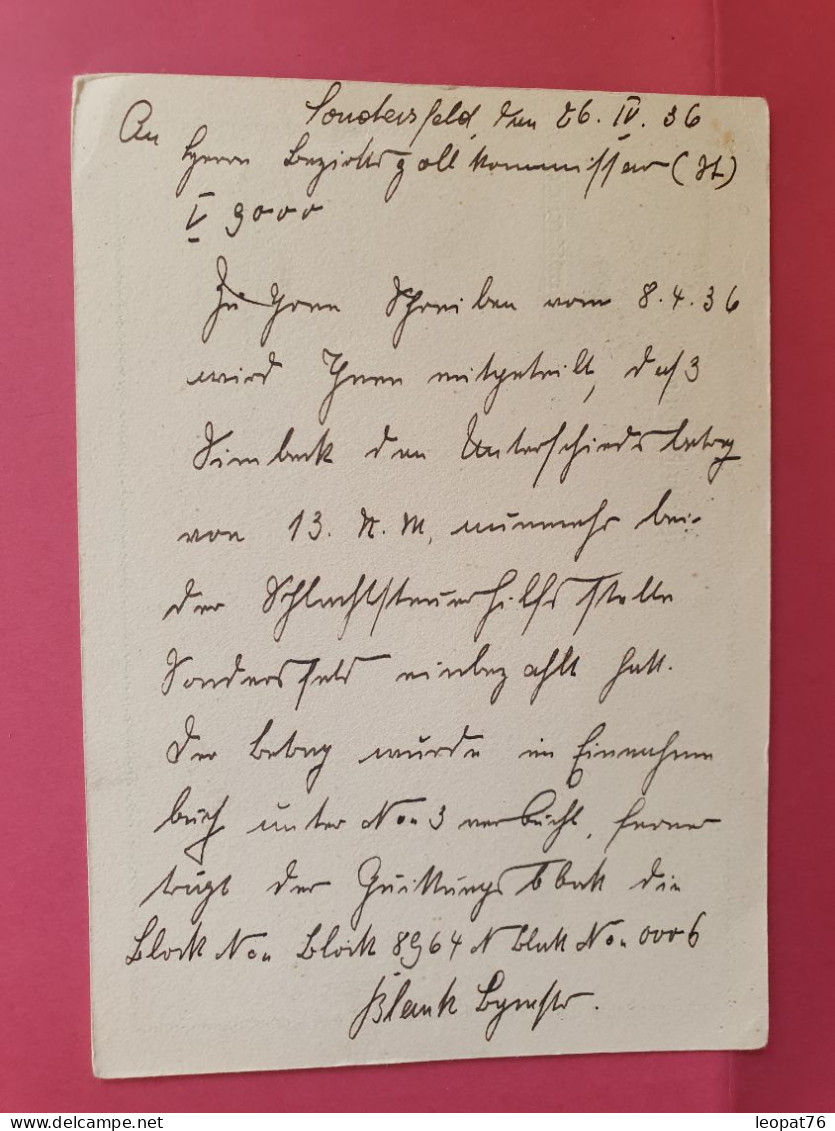 Sondersfeld, den 26. IV. 36
An
Herrn Bezirkszollkommissar (St)
V 9000
Zu Ihren Schreiben vom 8.4.36
wird Ihnen mitgeteilt, daß
Simbeck den Unterschiedsbetrag
von 13. R.M, nunmehr bei
der Schlachtsteuerhilfsstelle
Sondersfeld einbezahlt hat.
Der Betrag wurde im Einnahme
buch unter No 3 verbucht, ferner
trägt der Quittungsblock die
Block No Block 8964 N Blatt No 0006
Blank Bgmstr.
leopat76